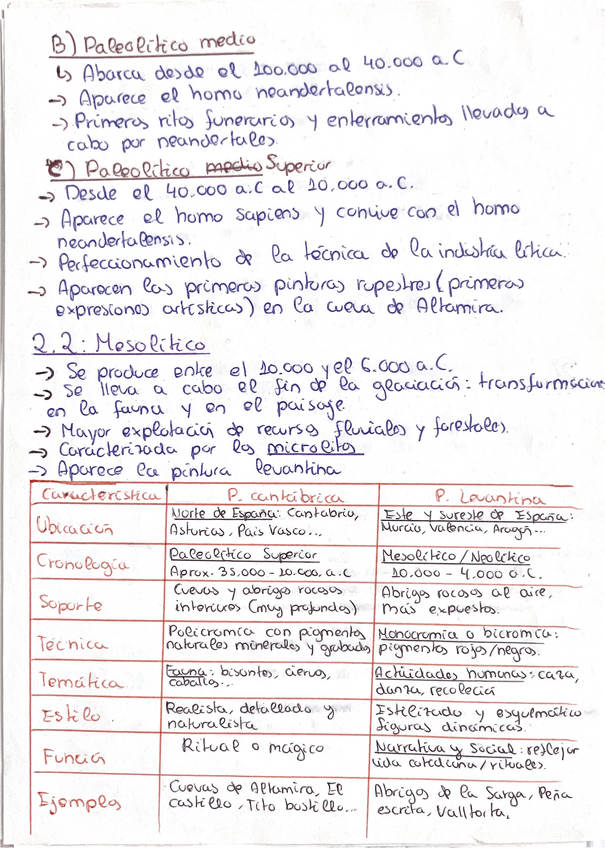 B) Paleolítico medio
↳ Abarca desde el 100.000 al 40.000 a.C
→ Aparece el homo neandertalensis.
→ Primeros ritos funerarios y enterramientos llevados a
cabo por neandertales.
C) Paleolítico medio Superior
→ Desde el 40.000 a.C al 10.000 a.C.
→ Aparece el homo sapiens y convive con el homo
neandertalensis.
→ Perfeccionamiento de la técnica de la industria lítica.
→ Aparecen las primeras pinturas rupestres (primeras
expresiones artísticas) en la cueva de Altamira.
2.2: Mesolítico
→ Se produce entre el 10.000 y el 6.000 a.C.
→ Se lleva a cabo el fin de la glaciación: transformacione
en la fauna y en el paisaje.
→ Mayor explotación de recursos fluviales y forestales.
→ Caracterizada por los microlitos
→ Aparece la pintura levantina
Característica | P. cantábrica | P. Levantina
Ubicación | Norte de España: Cantabria, Asturias, País Vasco... | Este y sureste de España: Murcia, Valencia, Aragón...
Cronología | Paleolítico Superior Aprox. 35.000 - 10.000. a.C | Mesolítico / Neolítico 10.000 - 4.000 a.C.
Soporte | Cuevas y abrigos rocosos interiores (muy profundos) | Abrigos rocosos al aire, más expuestos.
Técnica | Policromía con pigmentos naturales minerales y grabados | Monocromía o bicromía: pigmentos rojos/negros.
Temática | Fauna: bisontes, ciervos, caballos... | Actividades humanas: caza, danza, recolección
Estilo. | Realista, detallado y naturalista | Estilizado y esquemático figuras dinámicas.
Función | Ritual o mágico | Narrativa y Social: reflejar vida cotidiana/rituales.
Ejemplos | Cuevas de Altamira, El castillo, Tito bustillo... | Abrigos de la Sarga, Peña escrita, Valltorta.